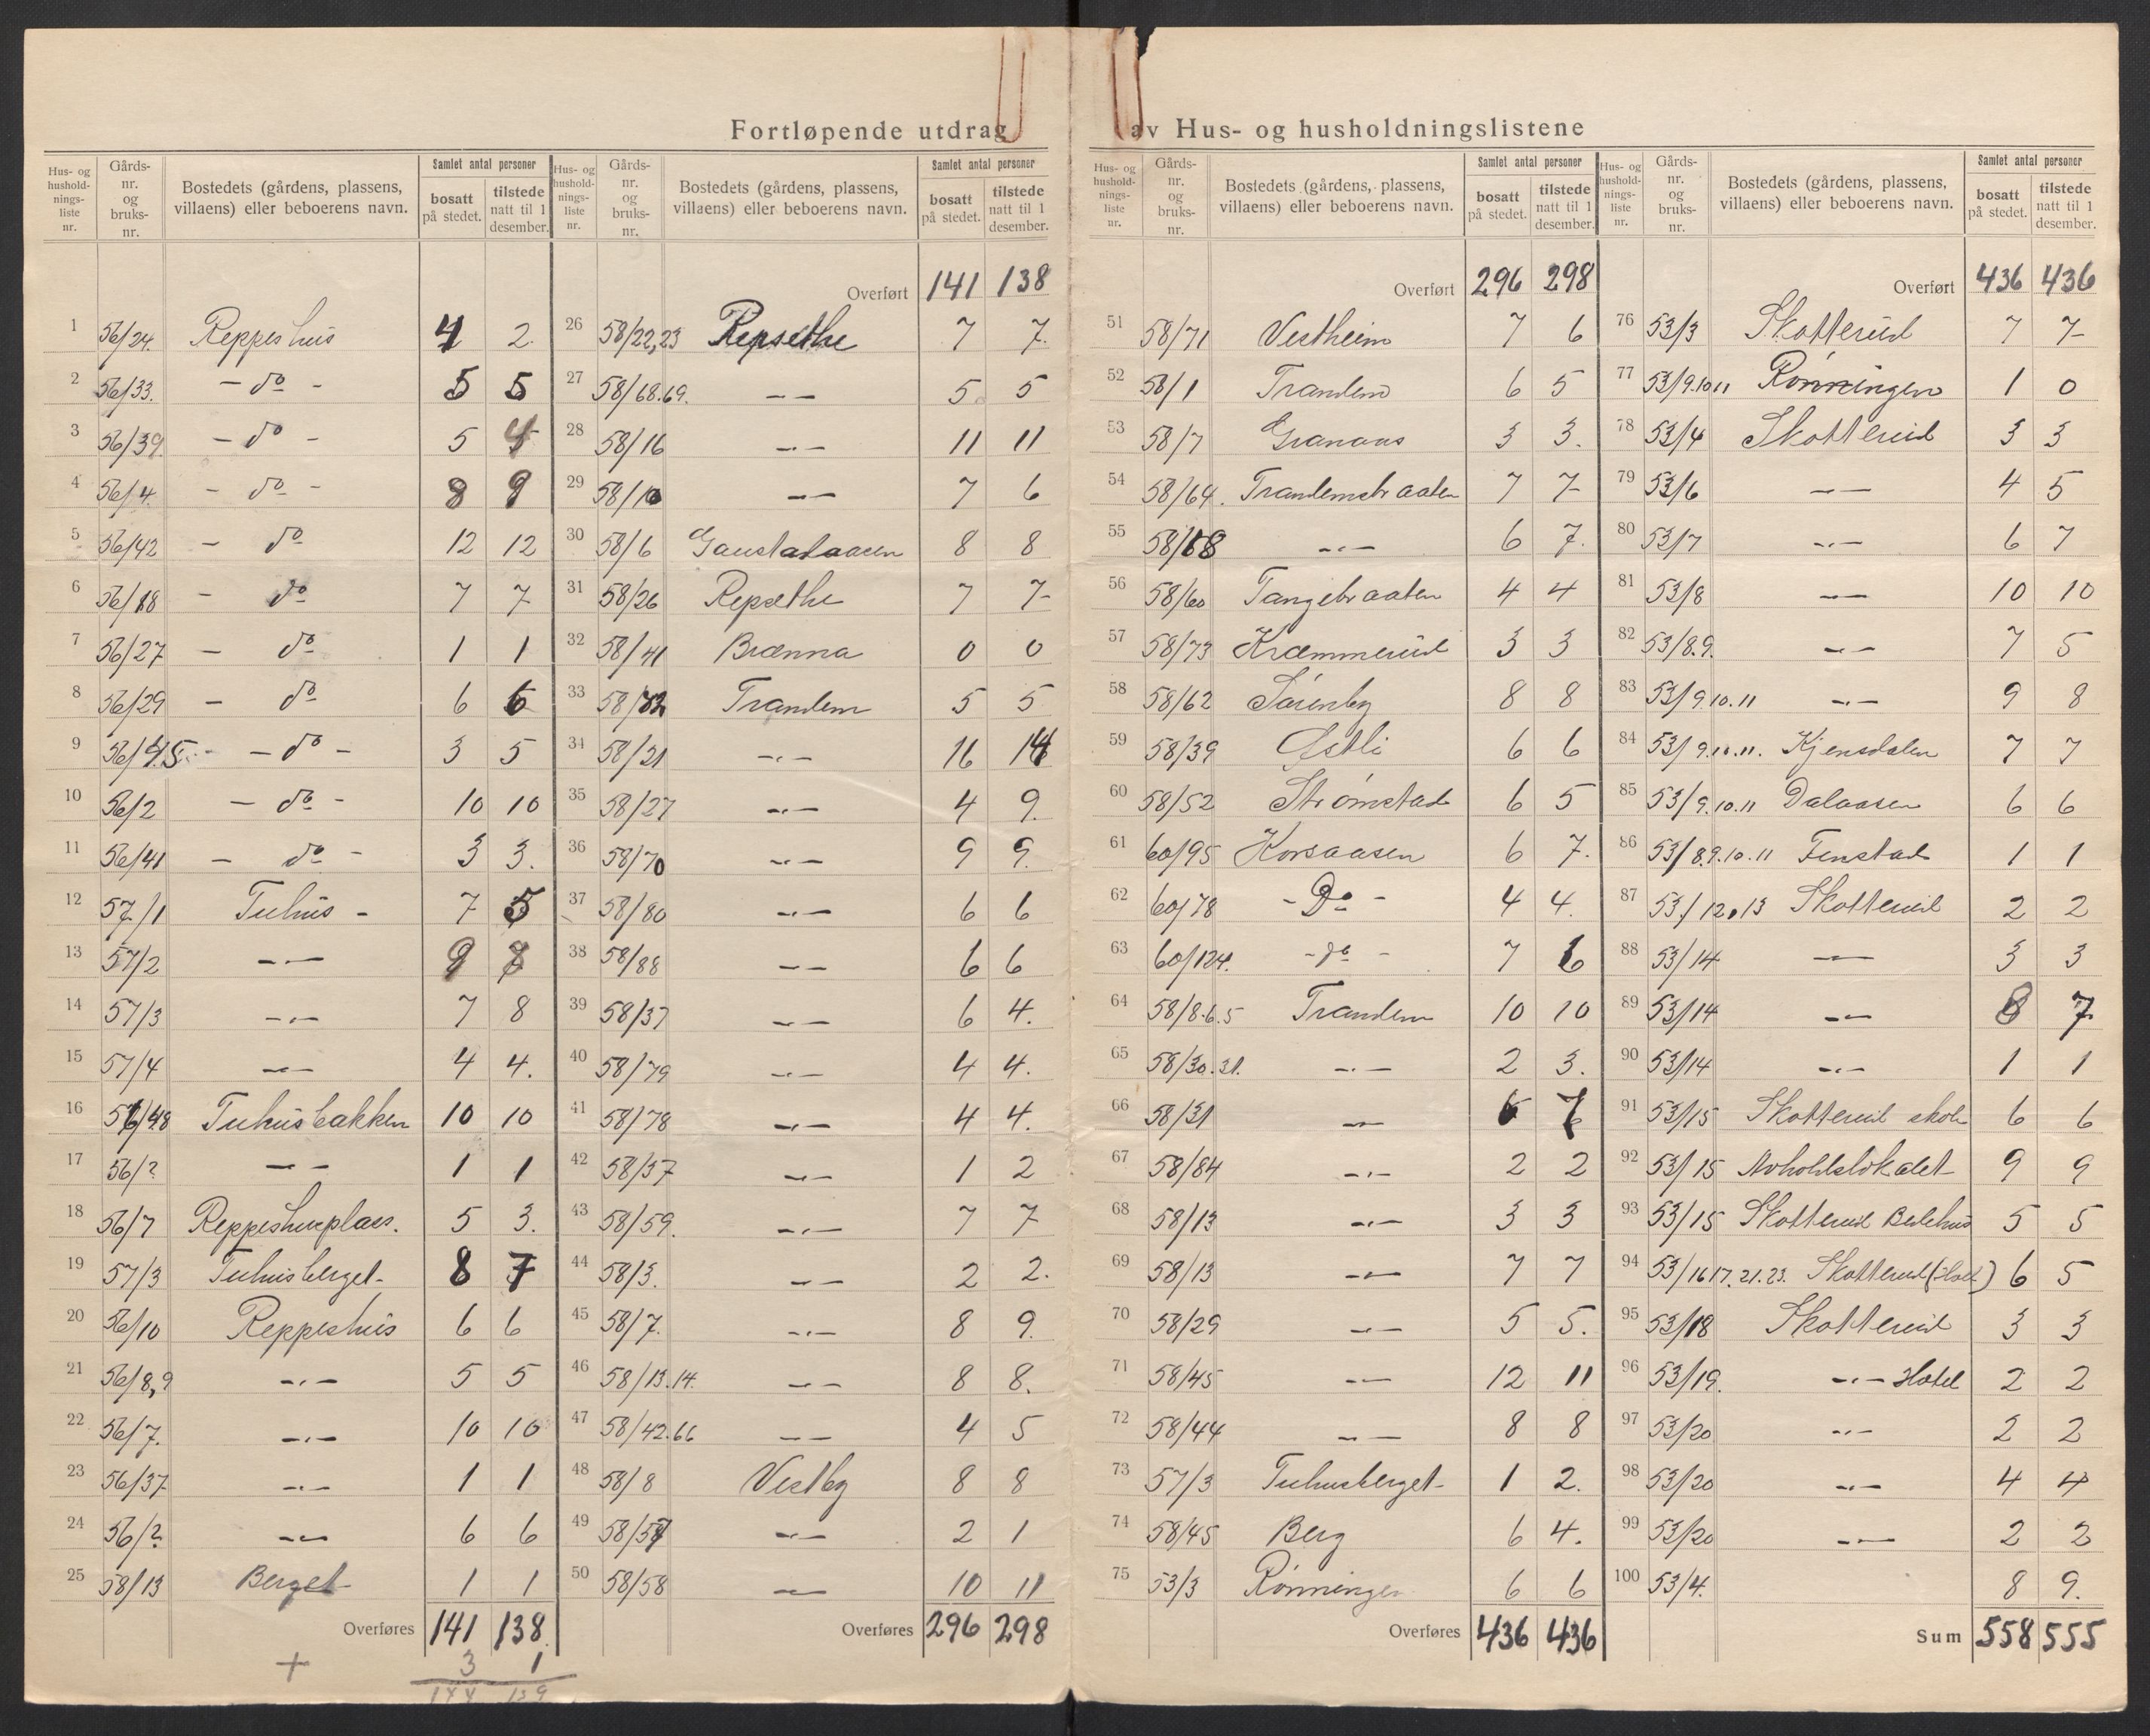 Fortløpende utdrag av Hus- og husholdningslistene
Hus- og hushold-nings-liste nr. Gårds-nr. og bruks-nr. Bostedets (gårdens, plassens, villaens) eller beboerens navn. Samlet antal personer bosatt på stedet. tilstede natt til 1 desember.
1 56/24. Reppeshus 4 2.
2 56/33. - do - 5 5
3 56/39. - do - 5
4 56/4. - do - 8 9
5 56/42 - do 12 12
6 56/18 - do 7 7
7 56/27 - do 1 1
8 56/29 - do 6 6
9 56/45 - do - 3 5
10 56/2 - do - 10 10
11 56/41 - do - 3 3.
12 57/1 Tuhus - 7 5
13 57/2 -"- 9 8
14 57/3 -"- 7 8
15 57/4 -"- 4 4.
16 56/48 Tuhusbakken 10 10
17 56/? -"- 1 1
18 56/7 Reppeshusplass. 5 3.
19 57/3 Tuhusberget- 8 7
20 56/10 Reppeshus 6 6
21 56/8,9 -"- 5 5
22 56/7. -"- 10 10
23 56/37 -"- 1 1
24 56/? -"- 6 6
25 58/13 Berget 1 1
Overføres 141 138.
+ 3 1
144 139
Hus- og hushold-nings-liste nr. Gårds-nr. og bruks-nr. Bostedets (gårdens, plassens, villaens) eller beboerens navn. Samlet antal personer bosatt på stedet. tilstede natt til 1 desember.
Overført 141 138
26 58/22,23 Repsethe 7 7.
27 58/68.69. -"- 5 5
28 58/16 -"- 11 11
29 58/10 -"- 7 6
30 58/6 Gaustadaasen 8 8
31 58/26 Repsethe 7 7-
32 58/41 Brænna 0 0
33 58/ Trandem 5 5
34 58/21 -"- 16 14
35 58/27 -"- 4 9.
36 58/70 -"- 9 9.
37 58/80 -"- 6 6
38 58/88 -"- 6 6
39 58/37 -"- 6 4.
40 58/79 -"- 4 4.
41 58/78 -"- 4 4.
42 58/57 -"- 1 2
43 58/59. -"- 7 7
44 58/3. -"- 2 2.
45 58/7. -"- 8 9.
46 58/13.14. -"- 8 8.
47 58/42.66 -"- 4 5
48 58/8 Vestby 8 8
49 58/57 -"- 2 1
50 58/58 -"- 10 11
Overføres 296 298
Hus- og hushold-nings-liste nr. Gårds-nr. og bruks-nr. Bostedets (gårdens, plassens, villaens) eller beboerens navn. Samlet antal personer bosatt på stedet. tilstede natt til 1 desember.
Overført 296 298
51 58/71 Vestheim 7 6
52 58/1 Trandem 6 5
53 58/7 Granaas 3 3.
54 58/64. Trandemsbraaten 7 7-
55 58/68 -"- 6 7.
56 58/60 Tangebraaten 4 4
57 58/73 Kræmmerud 3 3
58 58/62 Sørenby 8 8
59 58/39 Østli 6 6
60 58/52 Strømstad 6 5
61 60/95 Korsaasen 6 7.
62 60/78 - Do - 4 4.
63 60/124. - do - 7 6
64 58/8.6.5 Trandem 10 10
65 58/30.31. -"- 2 3.
66 58/31 -"- 6 7
67 58/84 -"- 2 2
68 58/13 -"- 3 3
69 58/13 -"- 7 7
70 58/29 -"- 5 5.
71 58/45 -"- 12 11
72 58/44 -"- 8 8
73 57/3 Tuhusberget- 1 2.
74 58/45 Berg 6 4.
75 53/3 Rønningen 6 6
Overføres 436 436
Hus- og hushold-nings-liste nr. Gårds-nr. og bruks-nr. Bostedets (gårdens, plassens, villaens) eller beboerens navn. Samlet antal personer bosatt på stedet. tilstede natt til 1 desember.
Overført 436 436
76 53/3 Skotterud 7 7-
77 53/9.10 11 Rønningen 1 0
78 53/4 Skotterud 3 3
79 53/6 -"- 4 5
80 53/7 -"- 6 7
81 53/8 -"- 10 10
82 53/8.9. -"- 7 5
83 53/9.10.11 -"- 9 8
84 53/9.10.11. Kjensdalen 7 7
85 53/9.10.11 Dalaasen 6 6
86 53/8.9.10.11 Fenstad 1 1
87 53/12.13 Skotterud 2 2
88 53/14 -"- 3 3
89 53/14 -"- 8 7
90 53/14 -"- 1 1
91 53/15 Skotterud skole 6 6
92 53/15 Avholdslokalet 9 9
93 53/15 Skotterud Bedehus 5 5
94 53/16 17. 21. 23. Skotterud 6 5
95 53/18 Skotterud 3 3
96 53/19. -"- Hotel 2 2
97 53/20 -"- 2 2
98 53/20 -"- 4 4
99 53/20 -"- 2 2
100 53/4. 8 9.
Sum 558 555